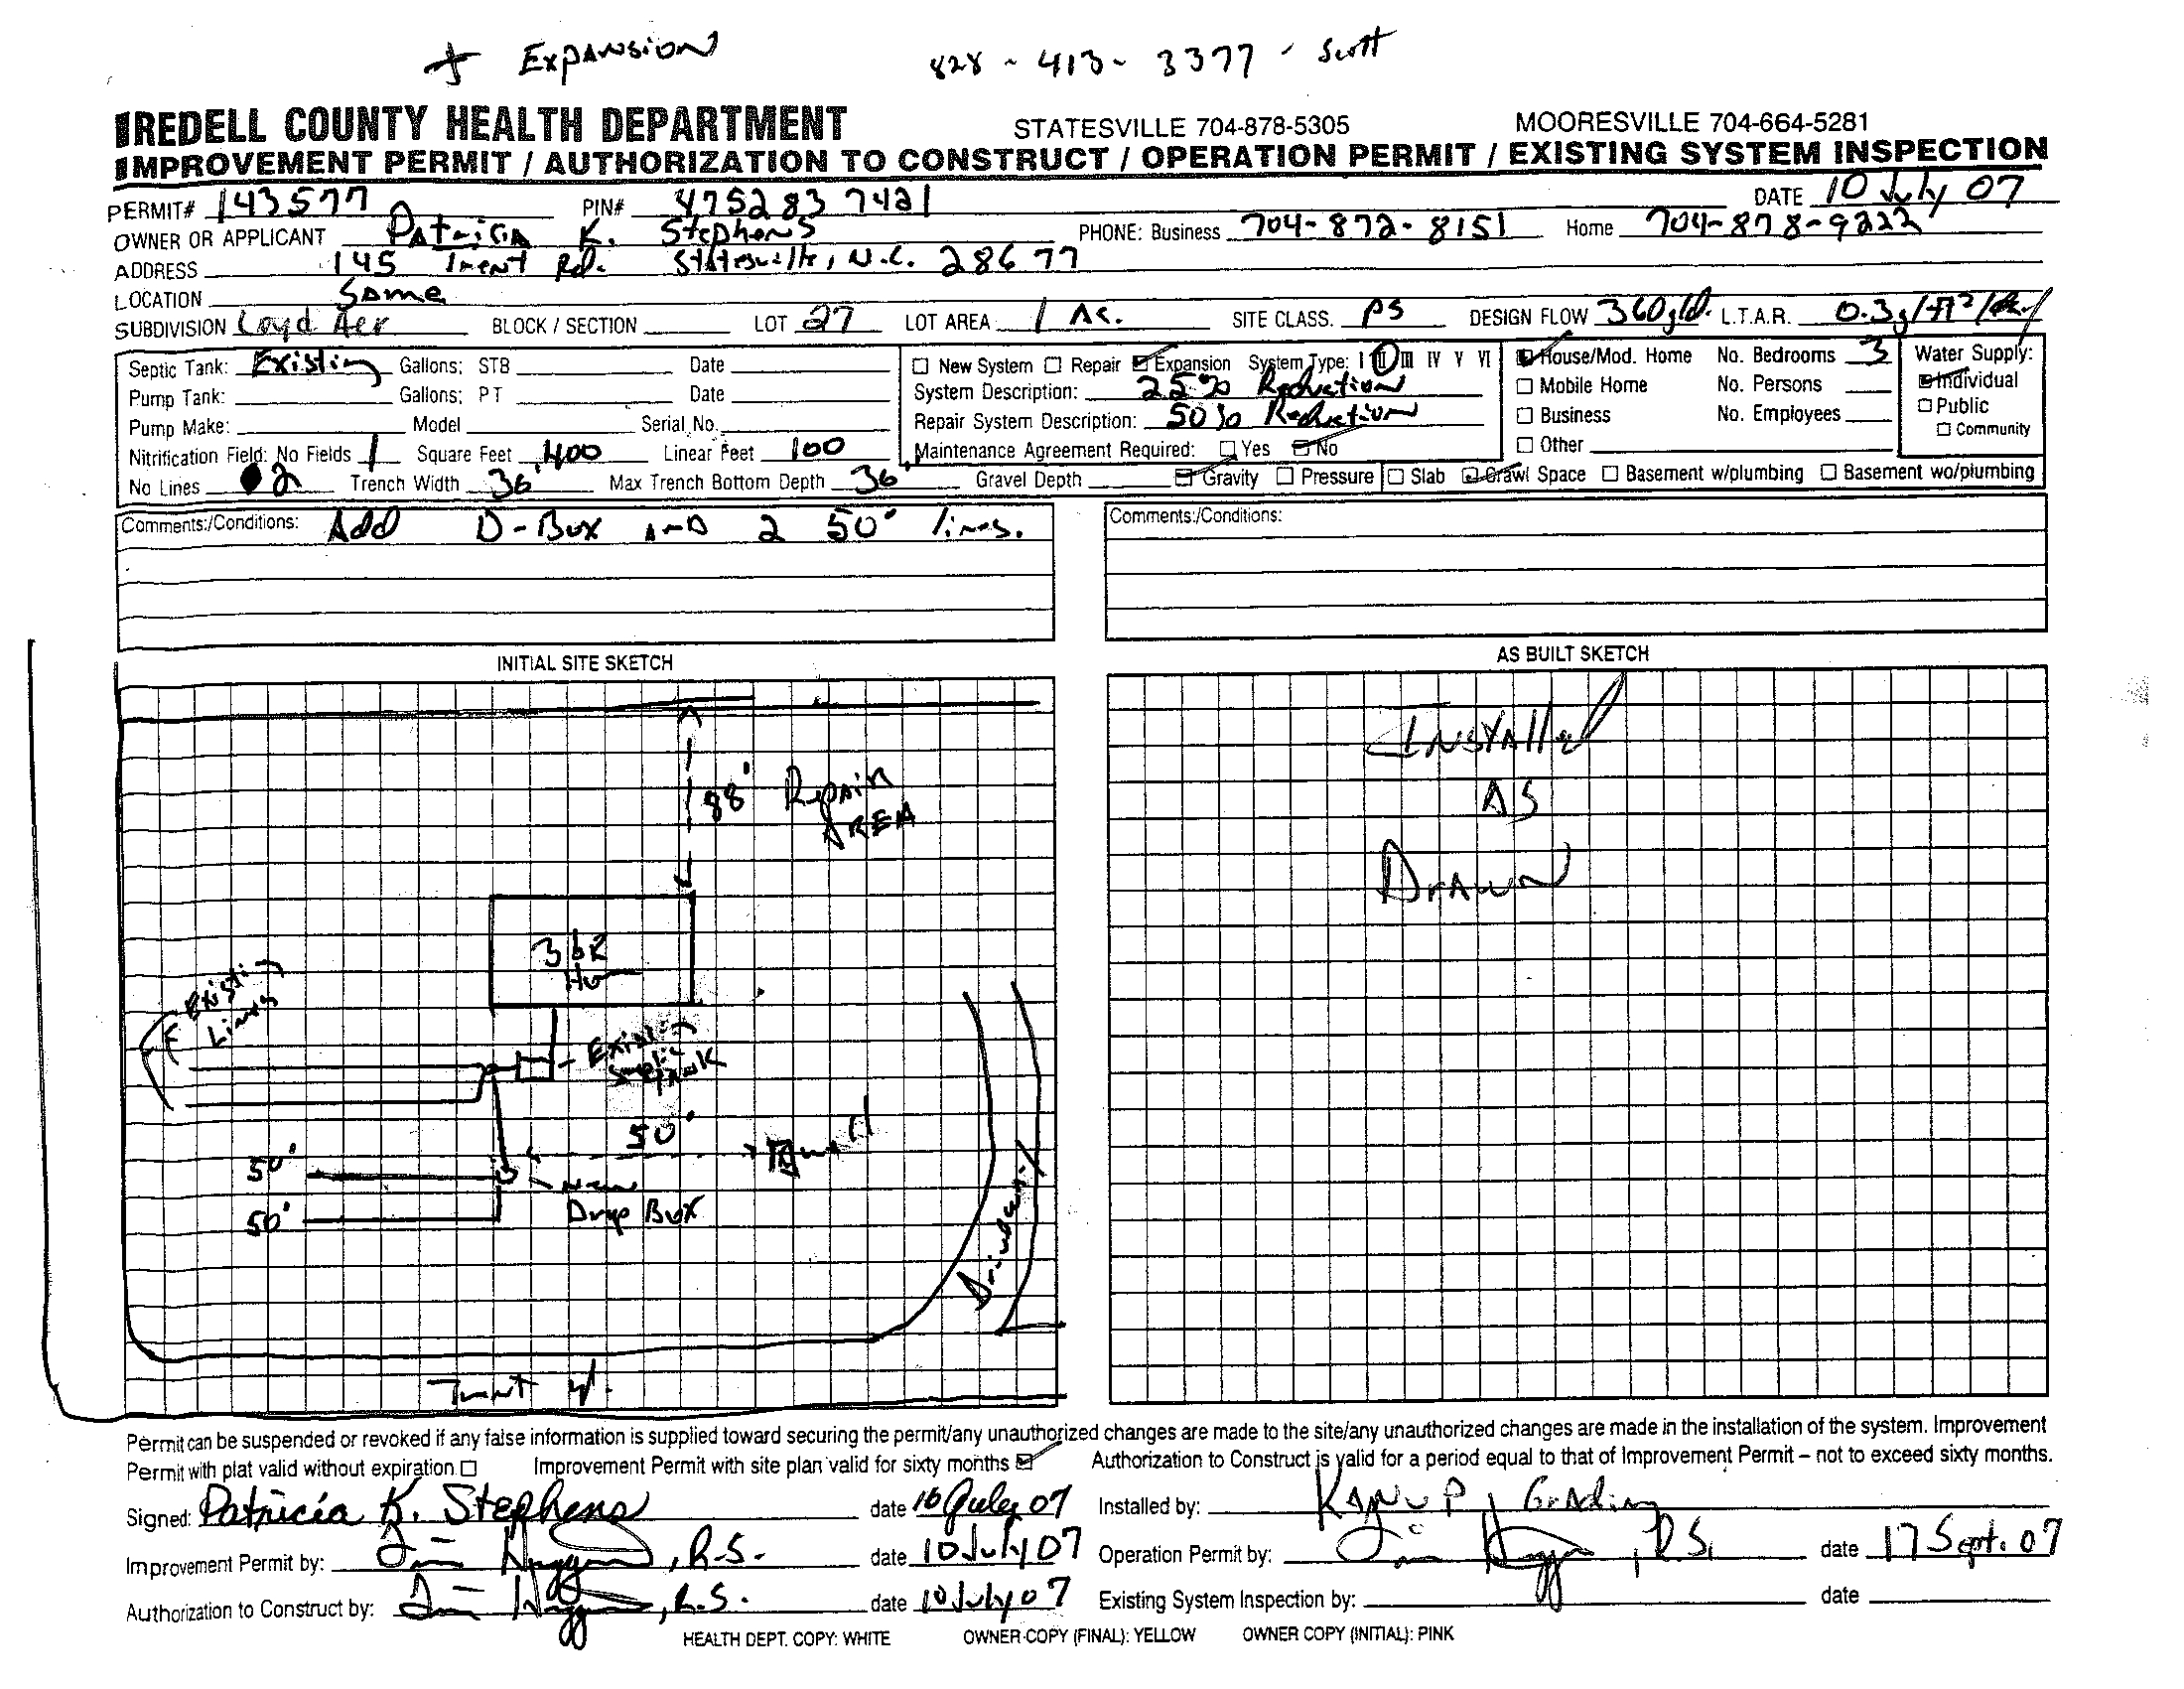 + EXPANSION 828-413-3377 - Scott
IREDELL COUNTY HEALTH DEPARTMENT STATESVILLE 704-878-5305 MOORESVILLE 704-664-5281
IMPROVEMENT PERMIT / AUTHORIZATION TO CONSTRUCT / OPERATION PERMIT / EXISTING SYSTEM INSPECTION
PERMIT# 143577 PIN# 4752837421 DATE 10 July 07
OWNER OR APPLICANT Patricia K. Stephens PHONE: Business 704-872-8151 Home 704-878-9222
ADDRESS 145 Rd. Statesville, N.C. 28677
LOCATION Same
SUBDIVISION Loyd Acr BLOCK / SECTION LOT 27 LOT AREA 1 Ac. SITE CLASS. PS DESIGN FLOW 360 g/d. L.T.A.R. 0.3g/ft2/day
Septic Tank: Existing Gallons: STB Date
Pump Tank: Gallons: PT Date
Pump Make: Model Serial No.
Nitrification Field: No Fields 1 Square Feet 400 Linear Feet 100
No Lines 2 Trench Width 36" Max Trench Bottom Depth 36" Gravel Depth
New System Repair Expansion System Type: I II III IV V VI
System Description: 25% Reduction
Repair System Description: 50% Reduction
Maintenance Agreement Required: Yes No
Gravity Pressure Slab Crawl Space Basement w/plumbing Basement wo/plumbing
House/Mod. Home No. Bedrooms 3
Mobile Home No. Persons
Business No. Employees
Other
Water Supply:
Individual
Public
Community
Comments:/Conditions: Add D-Box AND 2 50' lines.
Comments:/Conditions:
INITIAL SITE SKETCH
88' Repair
AREA
3 bR
Existing
Lines
Existing
Septic
Tank
50'
Well
50'
50'
New
Drop Box
Driveway
AS BUILT SKETCH
INSTAlled
AS
DrAWN
Permit can be suspended or revoked if any false information is supplied toward securing the permit/any unauthorized changes are made to the site/any unauthorized changes are made in the installation of the system. Improvement
Permit with plat valid without expiration. Improvement Permit with site plan valid for sixty months Authorization to Construct is valid for a period equal to that of Improvement Permit – not to exceed sixty months.
Signed: Patricia K. Stephens date 10 July 07 Installed by: KANUP Grading
Improvement Permit by: , R.S. date 10 July 07 Operation Permit by: , R.S. date 17 Sept. 07
Authorization to Construct by: , R.S. date 10 July 07 Existing System Inspection by: date
HEALTH DEPT. COPY: WHITE OWNER COPY (FINAL): YELLOW OWNER COPY (INITIAL): PINK